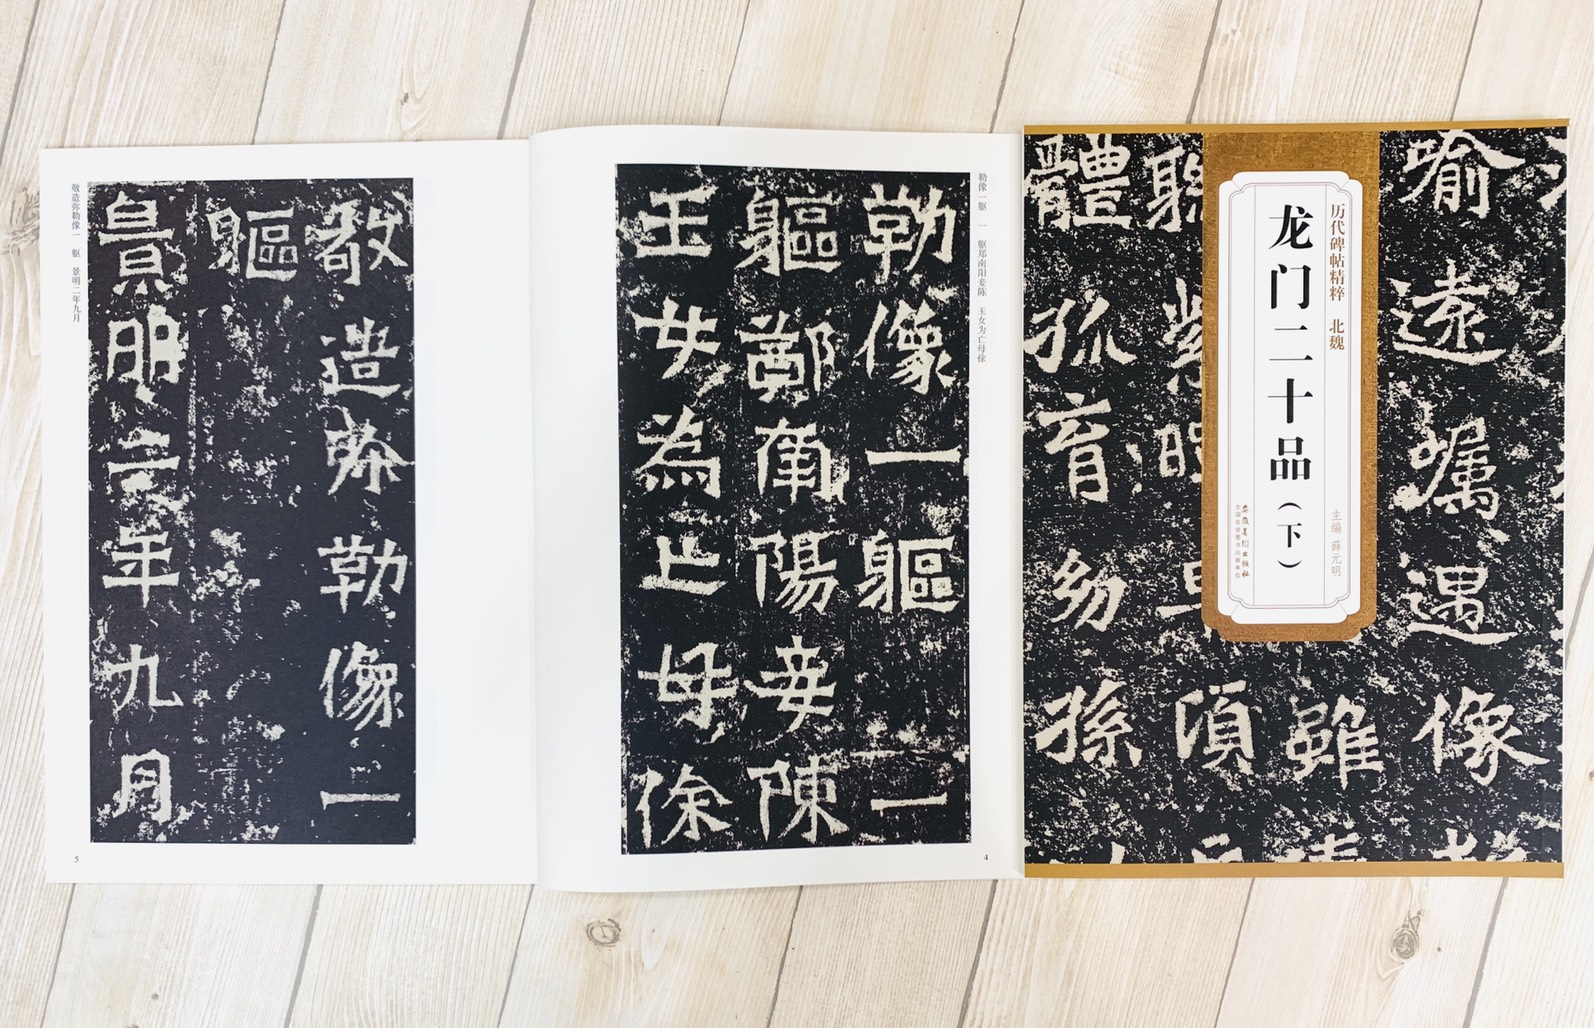 历代碑帖精粹 北魏
龙门二十品(下)
主编 薛元明
安徽美术出版社
勒像一躯 一 躯郑南阳妾陈 玉女为亡母徐
勒像一軀一
軀鄭南陽妾陳
玉女為亡母徐
4
敬造弥勒像一 躯 景明二年九月
敬造弥勒像一
軀
景明二年九月
5
體
孤
育
幼
孫
聡
紫
須
雖
喻
遠
囑
遇
像